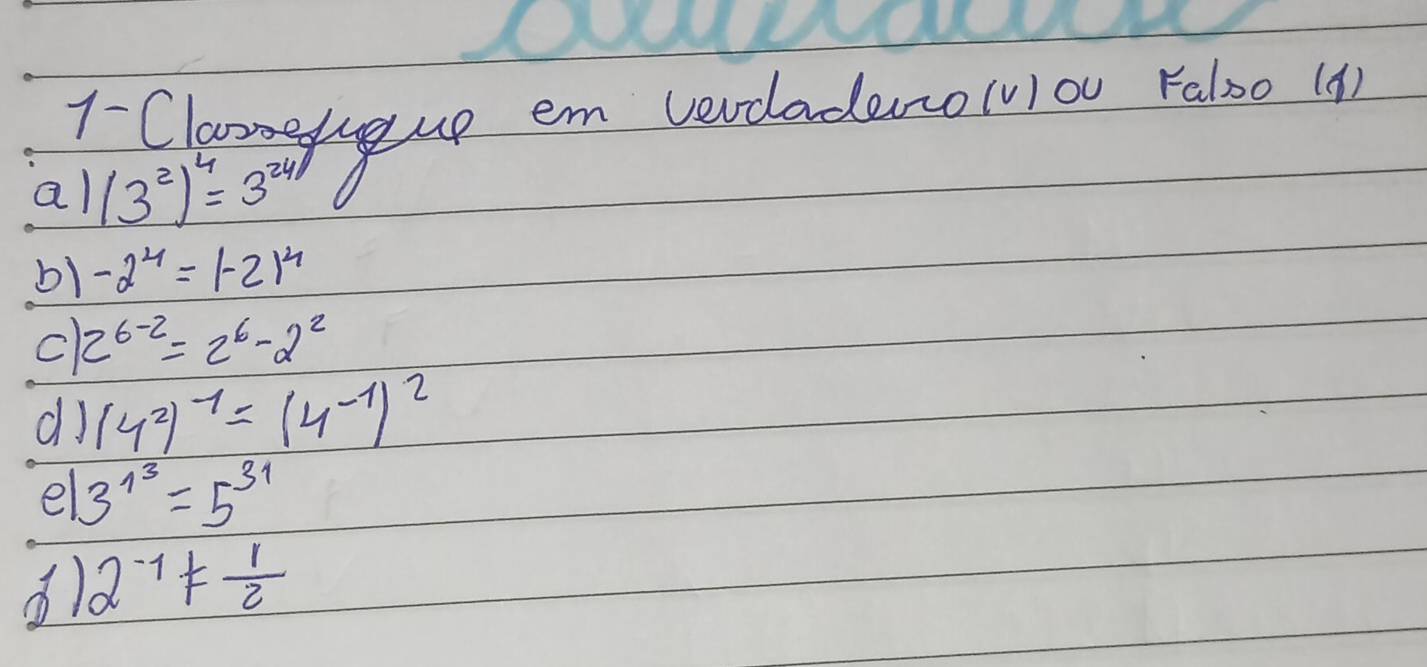 1-Classefique em verdadeiro (v) ou Falso (f)
a) (3²)⁴ = 3²⁴
b) -2⁴ = (-2)⁴
c) 2⁶⁻² = 2⁶-2²
d) (4²)⁻¹ = (4⁻¹)²
e) 3^1^3 = 5³¹
f) 2⁻¹ ≠ 1/2